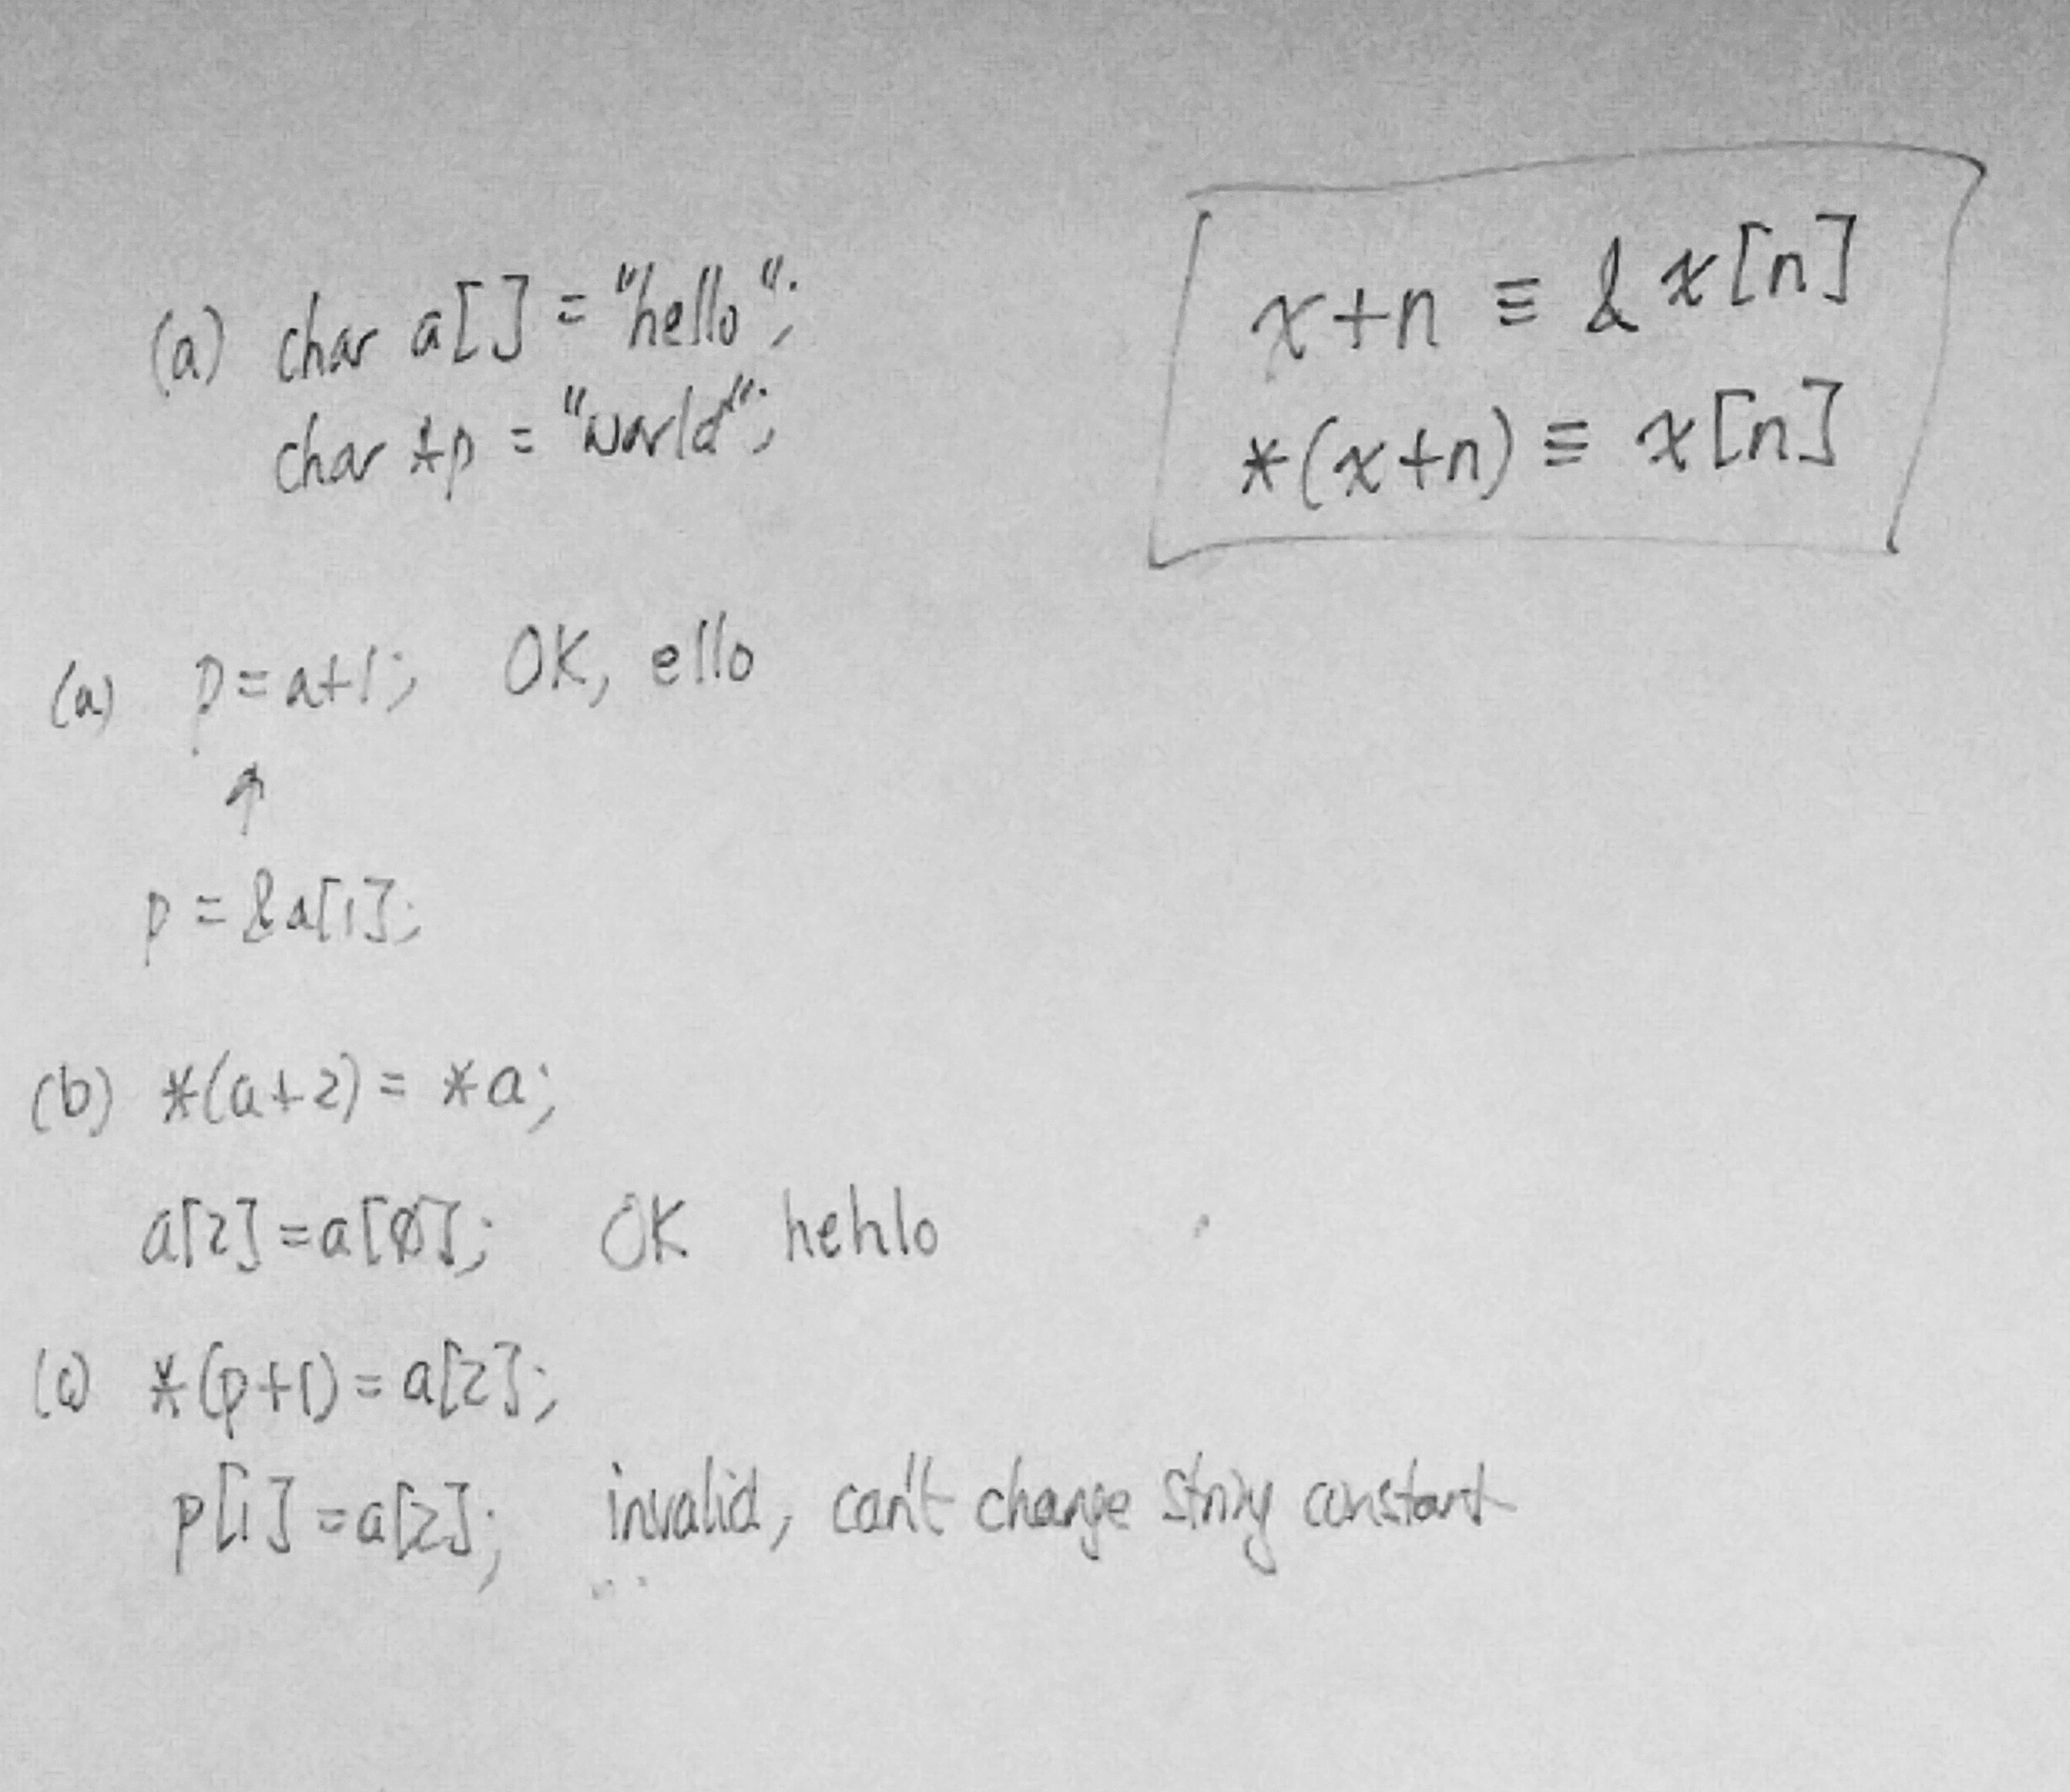 (a) char a[] = "hello";
char *p = "world";
x+n ≡ &x[n]
*(x+n) ≡ x[n]
(a) p=a+1; OK, ello
↑
p = &a[1];
(b) *(a+2) = *a;
a[2]=a[0]; OK hehlo
(c) *(p+1)=a[2];
p[1]=a[2]; invalid, can't change string constant